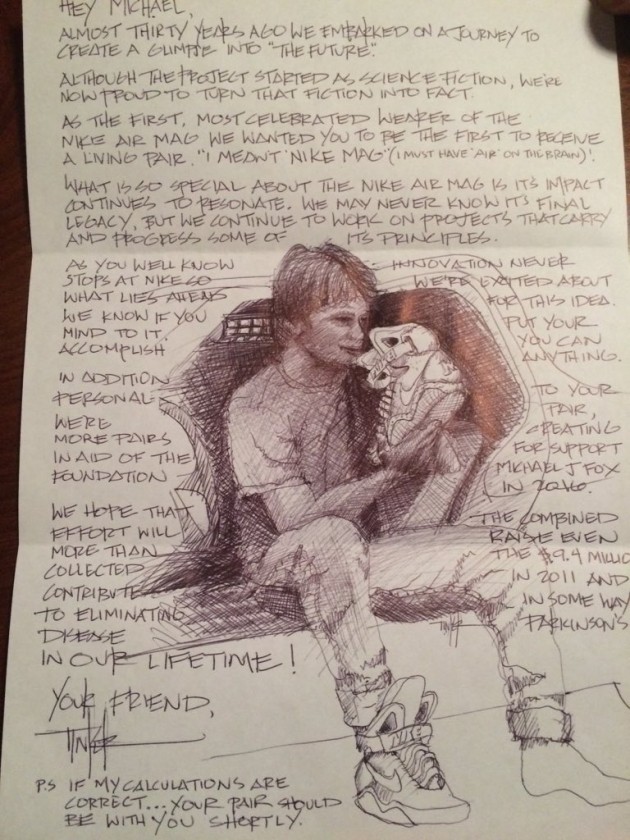 HEY MICHAEL,
ALMOST THIRTY YEARS AGO WE EMBARKED ON A JOURNEY TO
CREATE A GLIMPSE INTO "THE FUTURE."
ALTHOUGH THE PROJECT STARTED AS SCIENCE FICTION, WE'RE
NOW PROUD TO TURN THAT FICTION INTO FACT.
AS THE FIRST, MOST CELEBRATED WEARER OF THE
NIKE AIR MAG WE WANTED YOU TO BE THE FIRST TO RECEIVE
A LIVING PAIR. "I MEANT 'NIKE MAG' (I MUST HAVE 'AIR' ON THE BRAIN)!
WHAT IS SO SPECIAL ABOUT THE NIKE AIR MAG IS ITS IMPACT
CONTINUES TO RESONATE. WE MAY NEVER KNOW IT'S FINAL
LEGACY, BUT WE CONTINUE TO WORK ON PROJECTS THAT CARRY
AND PROGRESS SOME OF ITS PRINCIPLES.
AS YOU WELL KNOW INNOVATION NEVER
STOPS AT NIKE SO WE'RE EXCITED ABOUT
WHAT LIES AHEAD FOR THIS IDEA.
WE KNOW IF YOU PUT YOUR
MIND TO IT, YOU CAN
ACCOMPLISH ANYTHING.
IN ADDITION TO YOUR
PERSONAL PAIR,
WE'RE CREATING
MORE PAIRS FOR SUPPORT
IN AID OF THE MICHAEL J FOX
FOUNDATION IN 2016.
WE HOPE THAT THE COMBINED
EFFORT WILL RAISE EVEN
MORE THAN THE $9.4 MILLIO
COLLECTED IN 2011 AND
CONTRIBUTE IN SOME WAY
TO ELIMINATING PARKINSON'S
DISEASE
IN OUR LIFETIME!
TINKER
YOUR FRIEND,
TINKER
NIKE
P.S IF MY CALCULATIONS ARE
CORRECT... YOUR PAIR SHOULD
BE WITH YOU SHORTLY.